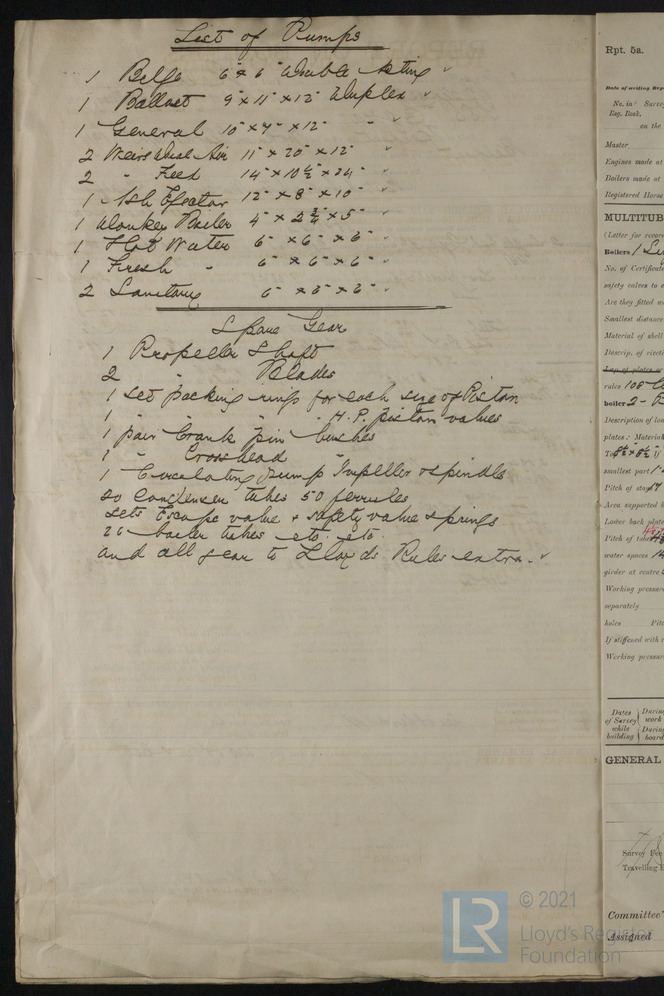 List of Pumps
1 Bilge 6" x 6" Double Acting
1 Ballast 9" x 11" x 12" Duplex
1 General 10" x 7" x 12" "
2 Weirs Dual Air 11" x 20" x 12"
2 " Feed 14" x 10½" x 24"
1 Ash Ejector 12" x 8" x 10"
1 Donkey Boiler 4" x 2¾" x 5"
1 Hot Water 6" x 6" x 6"
1 Fresh " 6" x 6" x 6"
2 Sanitary 6" x 6" x 6"
Spare Gear
1 Propeller Shaft
2 " Blades
1 set packing rings for each size of Piston
1 " " " H.P. piston valves
1 pair Crank pin bushes
1 " Crosshead "
1 Circulating Pump Impeller & spindle
20 condenser tubes 50 ferrules
sets Escape valve & safety valve springs
boiler tubes etc. etc
and all gear to Lloyds Rules extra.
Rpt. 5a.
Date of writing Rep
No. in Surve
Reg. Book.
on the
Master
Engines made at
Boilers made at
Registered Horse
MULTITUB
(Letter for recor
Boilers 1
No. of Certificate
safety valves to e
Are they fitted w
Smallest distance
Material of shell
Descrip. of rivet
Lap of plates or
rules 108
boiler 2 -
Description of lon
plates: Material
To
smallest part 1
Pitch of stay
Area supported b
Lower back plate
Pitch of tubes
water spaces 1
girder at centre
Working pressure
separately
holes Pitc
If stiffened with r
Working pressure
Dates of Survey while building
During work
During board
GENERAL
Survey Fee
Travelling E
Committee'
Assigned
LR
© 2021
Lloyd's Register
Foundation